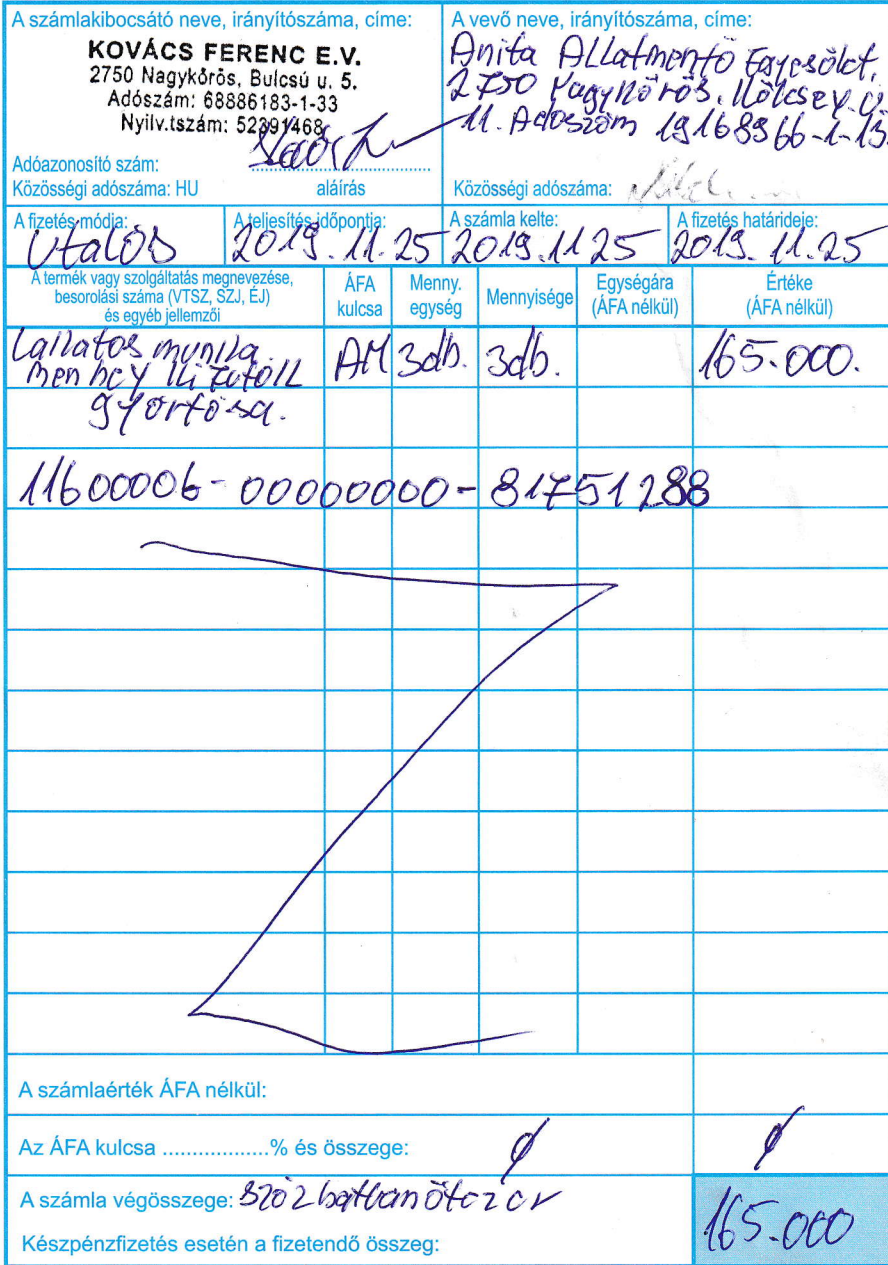 A számlakibocsátó neve, irányítószáma, címe:
KOVÁCS FERENC E.V.
2750 Nagykőrös, Bulcsú u. 5.
Adószám: 68886183-1-33
Nyilv.tszám: 52391468
Adóazonosító szám:
Közösségi adószáma: HU
aláírás
A vevő neve, irányítószáma, címe:
Anita Állatmentő Egyesület,
2750 Nagykőrös. Kölcsey. ú
11. Adószám 19168966-1-13.
Közösségi adószáma:
A fizetés módja:
Utalás
A teljesítés időpontja:
2019.11.25
A számla kelte:
2019.11 25
A fizetés határideje:
2019.11.25
A termék vagy szolgáltatás megnevezése, besorolási száma (VTSZ, SZJ, ÉJ) és egyéb jellemzői
ÁFA kulcsa
Menny. egység
Mennyisége
Egységára (ÁFA nélkül)
Értéke (ÁFA nélkül)
Lakatos munka AM 3db. 3db. 165.000.
kifutók
gyártása.
11600006-00000000-81751288
A számlaérték ÁFA nélkül:
Az ÁFA kulcsa ..................% és összege: ∅ ∅
A számla végösszege: Százhatvanötezer 165.000
Készpénzfizetés esetén a fizetendő összeg: